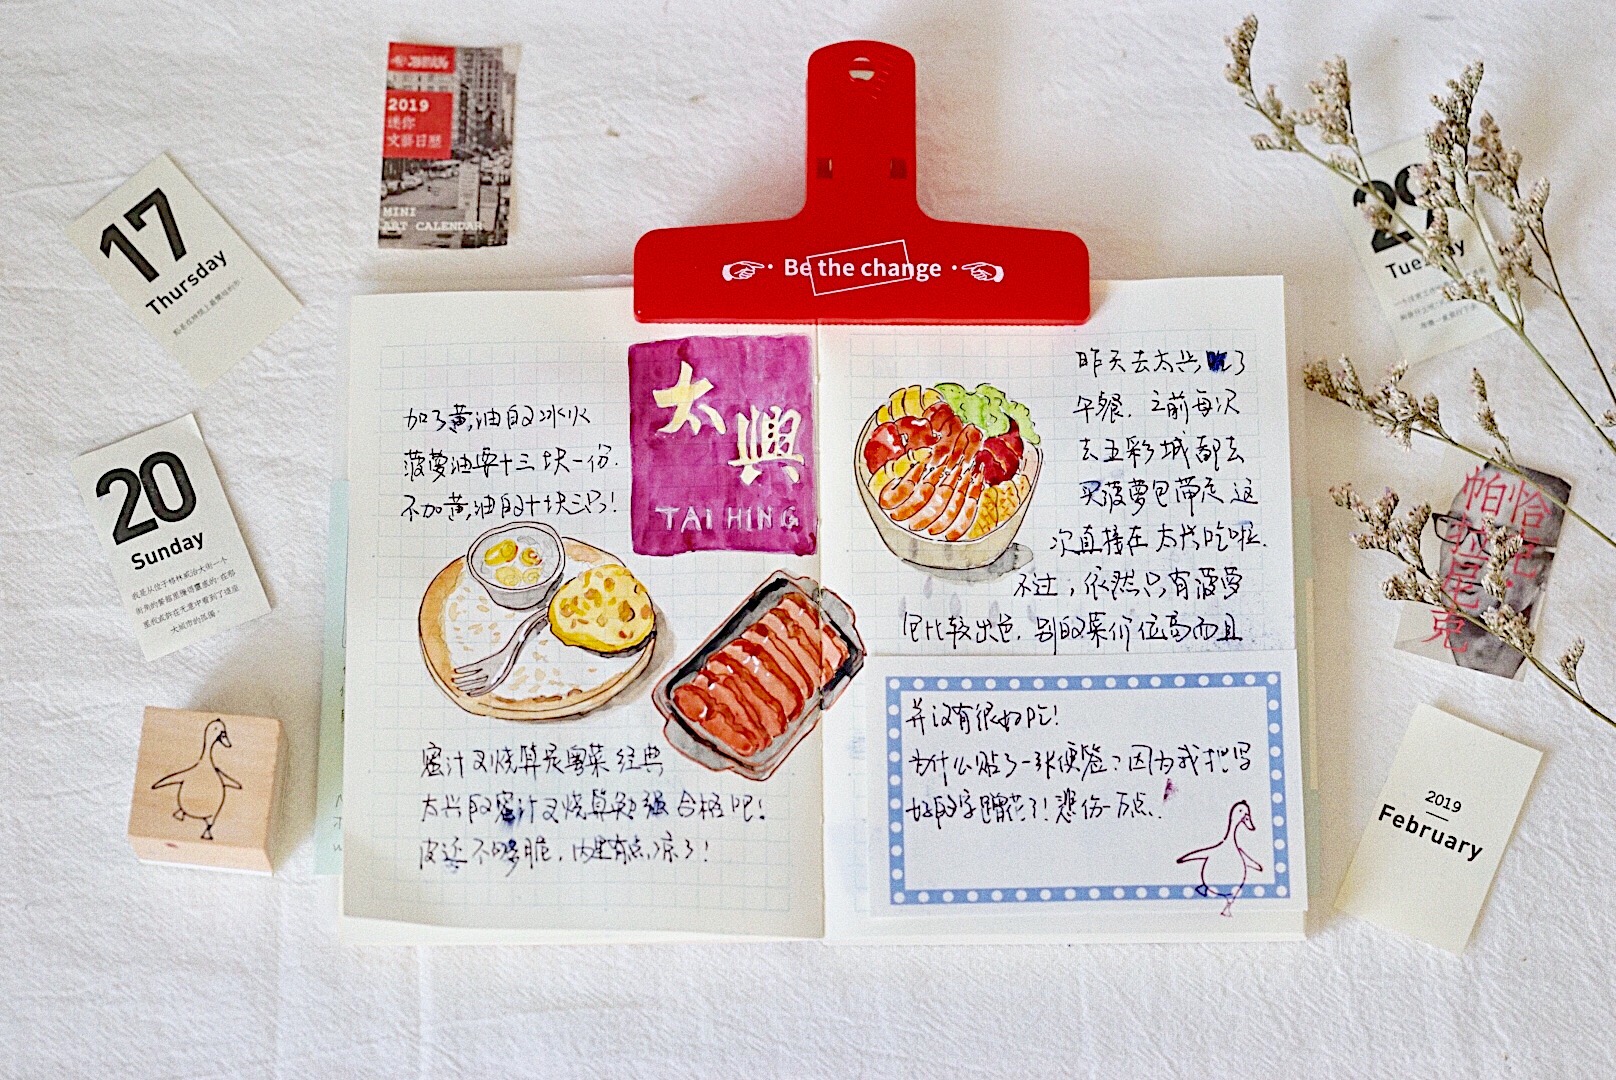 2019
迷你
文藝日歷
MINI
ART CALENDAR
17
Thursday
20
Sunday
我是从位于格林威治大街一个
大都市的氛围
Be the change
加了黄油的冰火
菠萝油要十三块一份.
不加黄油的十块三只!
太興
TAI HING
蜜汁叉烧算是粤菜经典
太兴的蜜汁叉烧算勉强合格吧!
皮还不够脆,内里有点凉了!
昨天去太兴吃了
午餐.之前每次
去五彩城都去
买菠萝包带走 这
次直接在太兴吃啦.
不过,依然只有菠萝
包比较出色.别的菜价位高而且
并没有很好吃!
为什么贴了一张便签?因为我把写
好的字蹭花了!悲伤一万点.
29
Tuesday
恰克·
帕拉尼克
2019
February